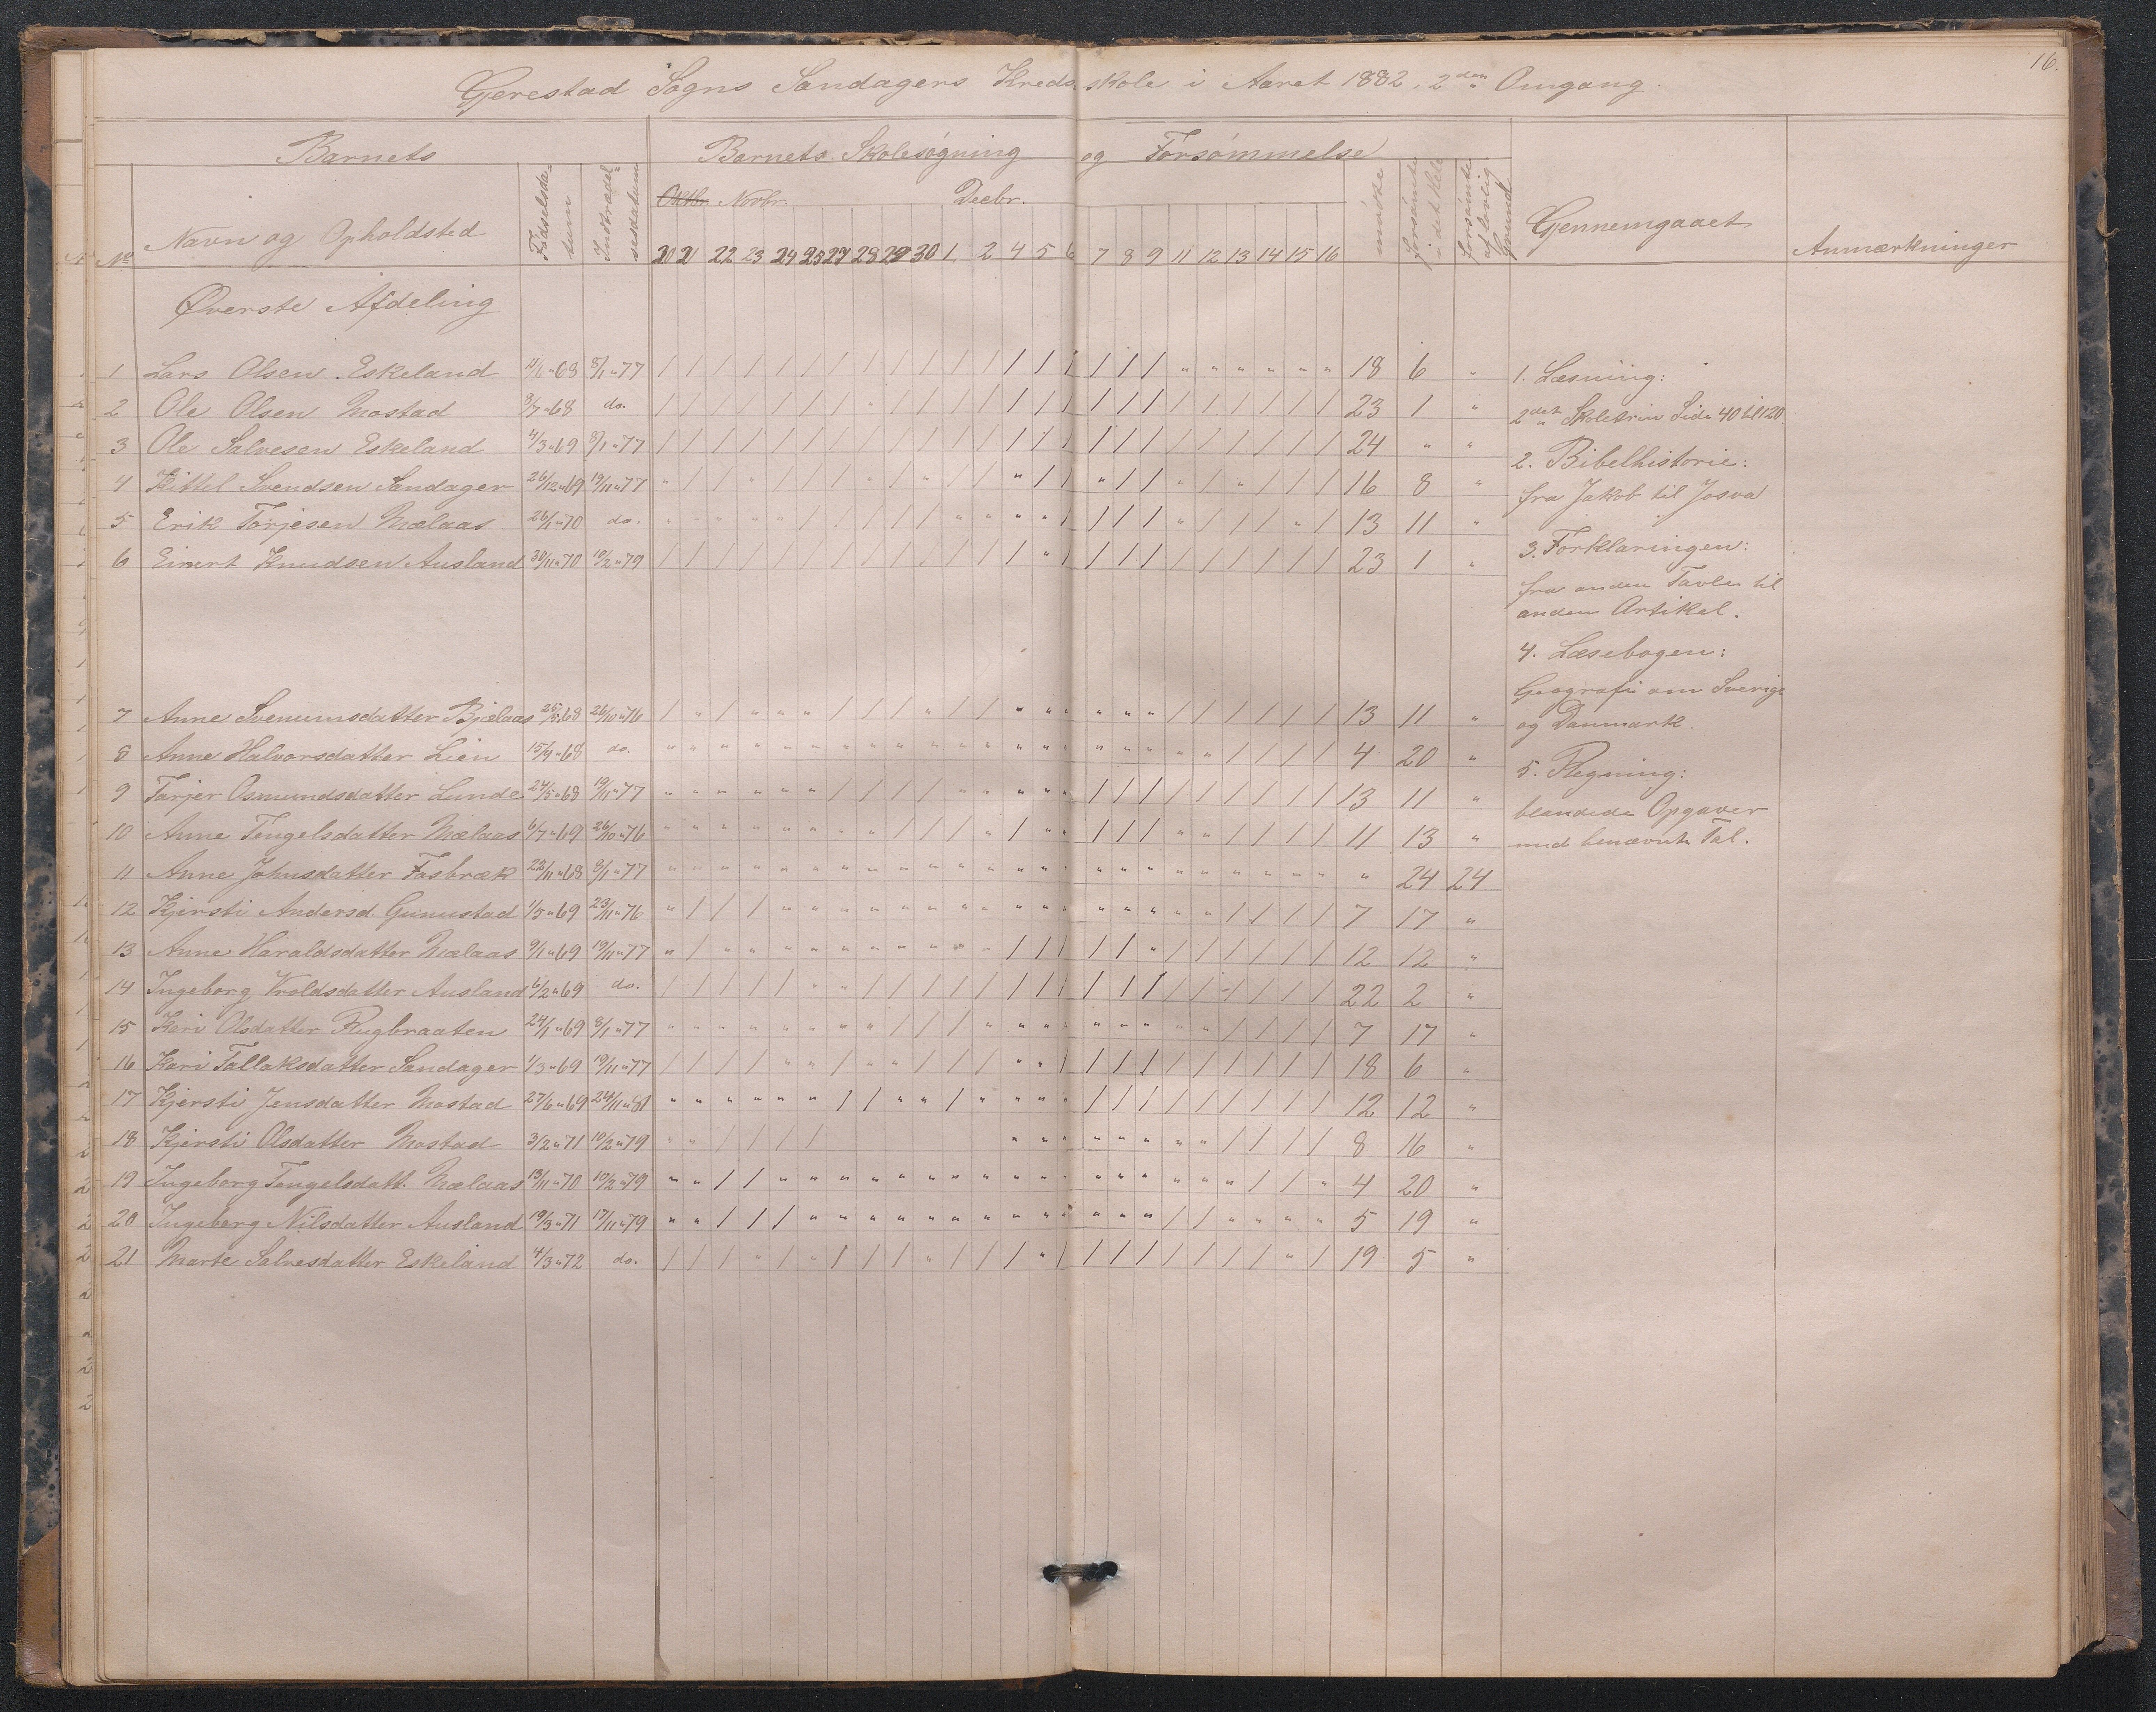 16.
Gjerestad Sogns Sandagers Kredsskole i Aaret 1882, 2den Omgang.
Barnets
Barnets Skolesøgning og Forsømmelse
Oktbr. Novbr. Decbr.
No Navn og Opholdsted Fødselsdatum Indtrædelsesdatum 20 21 22 23 24 25 27 28 29 30 1 2 4 5 6 7 8 9 11 12 13 14 15 16 mødte forsømte i det Hele forsømte af lovlig Grund Gjennemgaaet Anmærkninger
Øverste Afdeling
1 Lars Olsen Eskeland 8/1 " 77 / / / / / / / / / / / / / / / / / / " " " " " " 18 6 "
2 Ole Olsen Mostad 8/7 " 68 do. / / / / / / / " / / / / / / / / / / / / / / / / 23 1 "
3 Ole Salvesen Eskeland 4/3 " 69 8/1 " 77 / / / / / / / / / / / / / / / / / / / / / / / / 24 " "
4 Kittel Svendsen Sandager 26/12 " 69 19/11 " 77 " / / " / / / " / " / / " / / " / / " / " / " / 16 8 "
5 Erik Torjesen Mælaas 26/1 " 70 do. " " " " " / / / / / " " " " / / / / " / / / " / 13 11 "
6 Einert Knudsen Ausland 30/11 " 70 10/2 " 79 / / / / / / / / / / / / / " / / / / / / / / / / 23 1 "
7 Anne Svenumsdatter Bjælaas 25/5 " 68 26/10 " 76 / " / " " " / / / " / / " " " " " " / / / / / / 13 11 "
8 Anne Halvorsdatter Lien 15/9 " 68 do. " " " " " " " " " " " " " " " " " " " " / / / / 4 20 "
9 Torjer Osmundsdatter Lunde 24/5 " 68 19/11 " 77 " " " " " " / / / / " " " " " / / / / / / / / / 13 11 "
10 Anne Tengelsdatter Mælaas 6/7 " 69 26/10 " 76 " " " " " " " " / / / " / " " / / / " " / / / / 11 13 "
11 Anne Johnsdatter Fosbræk 22/11 " 68 8/1 " 77 " " " " " " " " " " " " " " " " " " " " " " " " " 24 24
12 Kjersti Andersd. Gunustad 1/5 " 69 23/11 " 76 " / / / " " " " " " " " " " " " " " " " / / / / 7 17 "
13 Anne Haraldsdatter Mælaas 9/1 " 69 19/11 " 77 " / " " " " " " " " " " / / / / / " / / / / / / 12 12 "
14 Ingeborg Vroldsdatter Ausland 6/2 " 69 do. / / / / / " " / / / / / / / / / / / / / / / / / 22 2 "
15 Kari Olsdatter Rugbraaten 24/1 " 69 8/1 " 77 " " " " " " " " / / / " " " " " " " " " / / / / 7 17 "
16 Kari Tallaksdatter Sandager 1/3 " 69 19/11 " 77 / / / / " " / " " / / / " " / / / / / / / / / / 18 6 "
17 Kjersti Jensdatter Mostad 27/6 " 69 24/11 " 81 " " " " " " / / " " / " " " " / / / / / / / / / 12 12 "
18 Kjersti Olsdatter Mostad 3/2 " 71 10/2 " 79 " " / / / / " " " " " " " " " / / / / 8 16 "
19 Ingeborg Tengelsdatt. Mælaas 13/11 " 70 10/2 " 79 " " / / " " " " " " " " " " " " " " " " " / / " 4 20 "
20 Ingeborg Nilsdatter Ausland 19/3 " 71 17/11 " 79 " " / / / " " " " " " " " " " " " " / / " " " " 5 19 "
21 Marte Salvesdatter Eskeland 4/3 " 72 do. / / / " / " / / / " / / / " / / / / / / / / " / 19 5 "
1. Læsning:
2det Skoletrin Side 40 til 120.
2. Bibelhistorie:
fra Jakob til Josva
3. Forklaringen:
fra anden Tavle til
anden Artikel.
4. Læsebogen:
Geografi om Sverige
og Danmark.
5. Regning:
blandede Opgaver
med benævnte Tal.